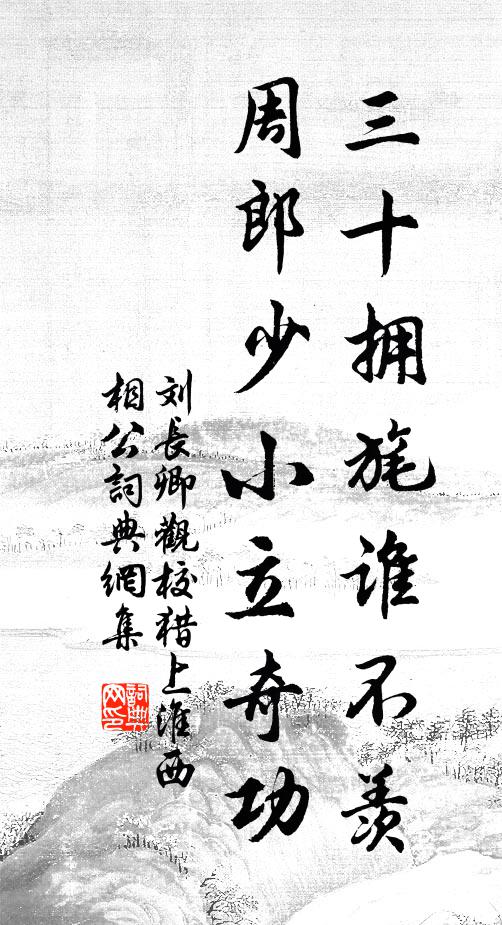 三十拥旄谁不羡
周郎少小立奇功
刘长卿觀校猎上淮西
相公詞典網集
詞典
网印